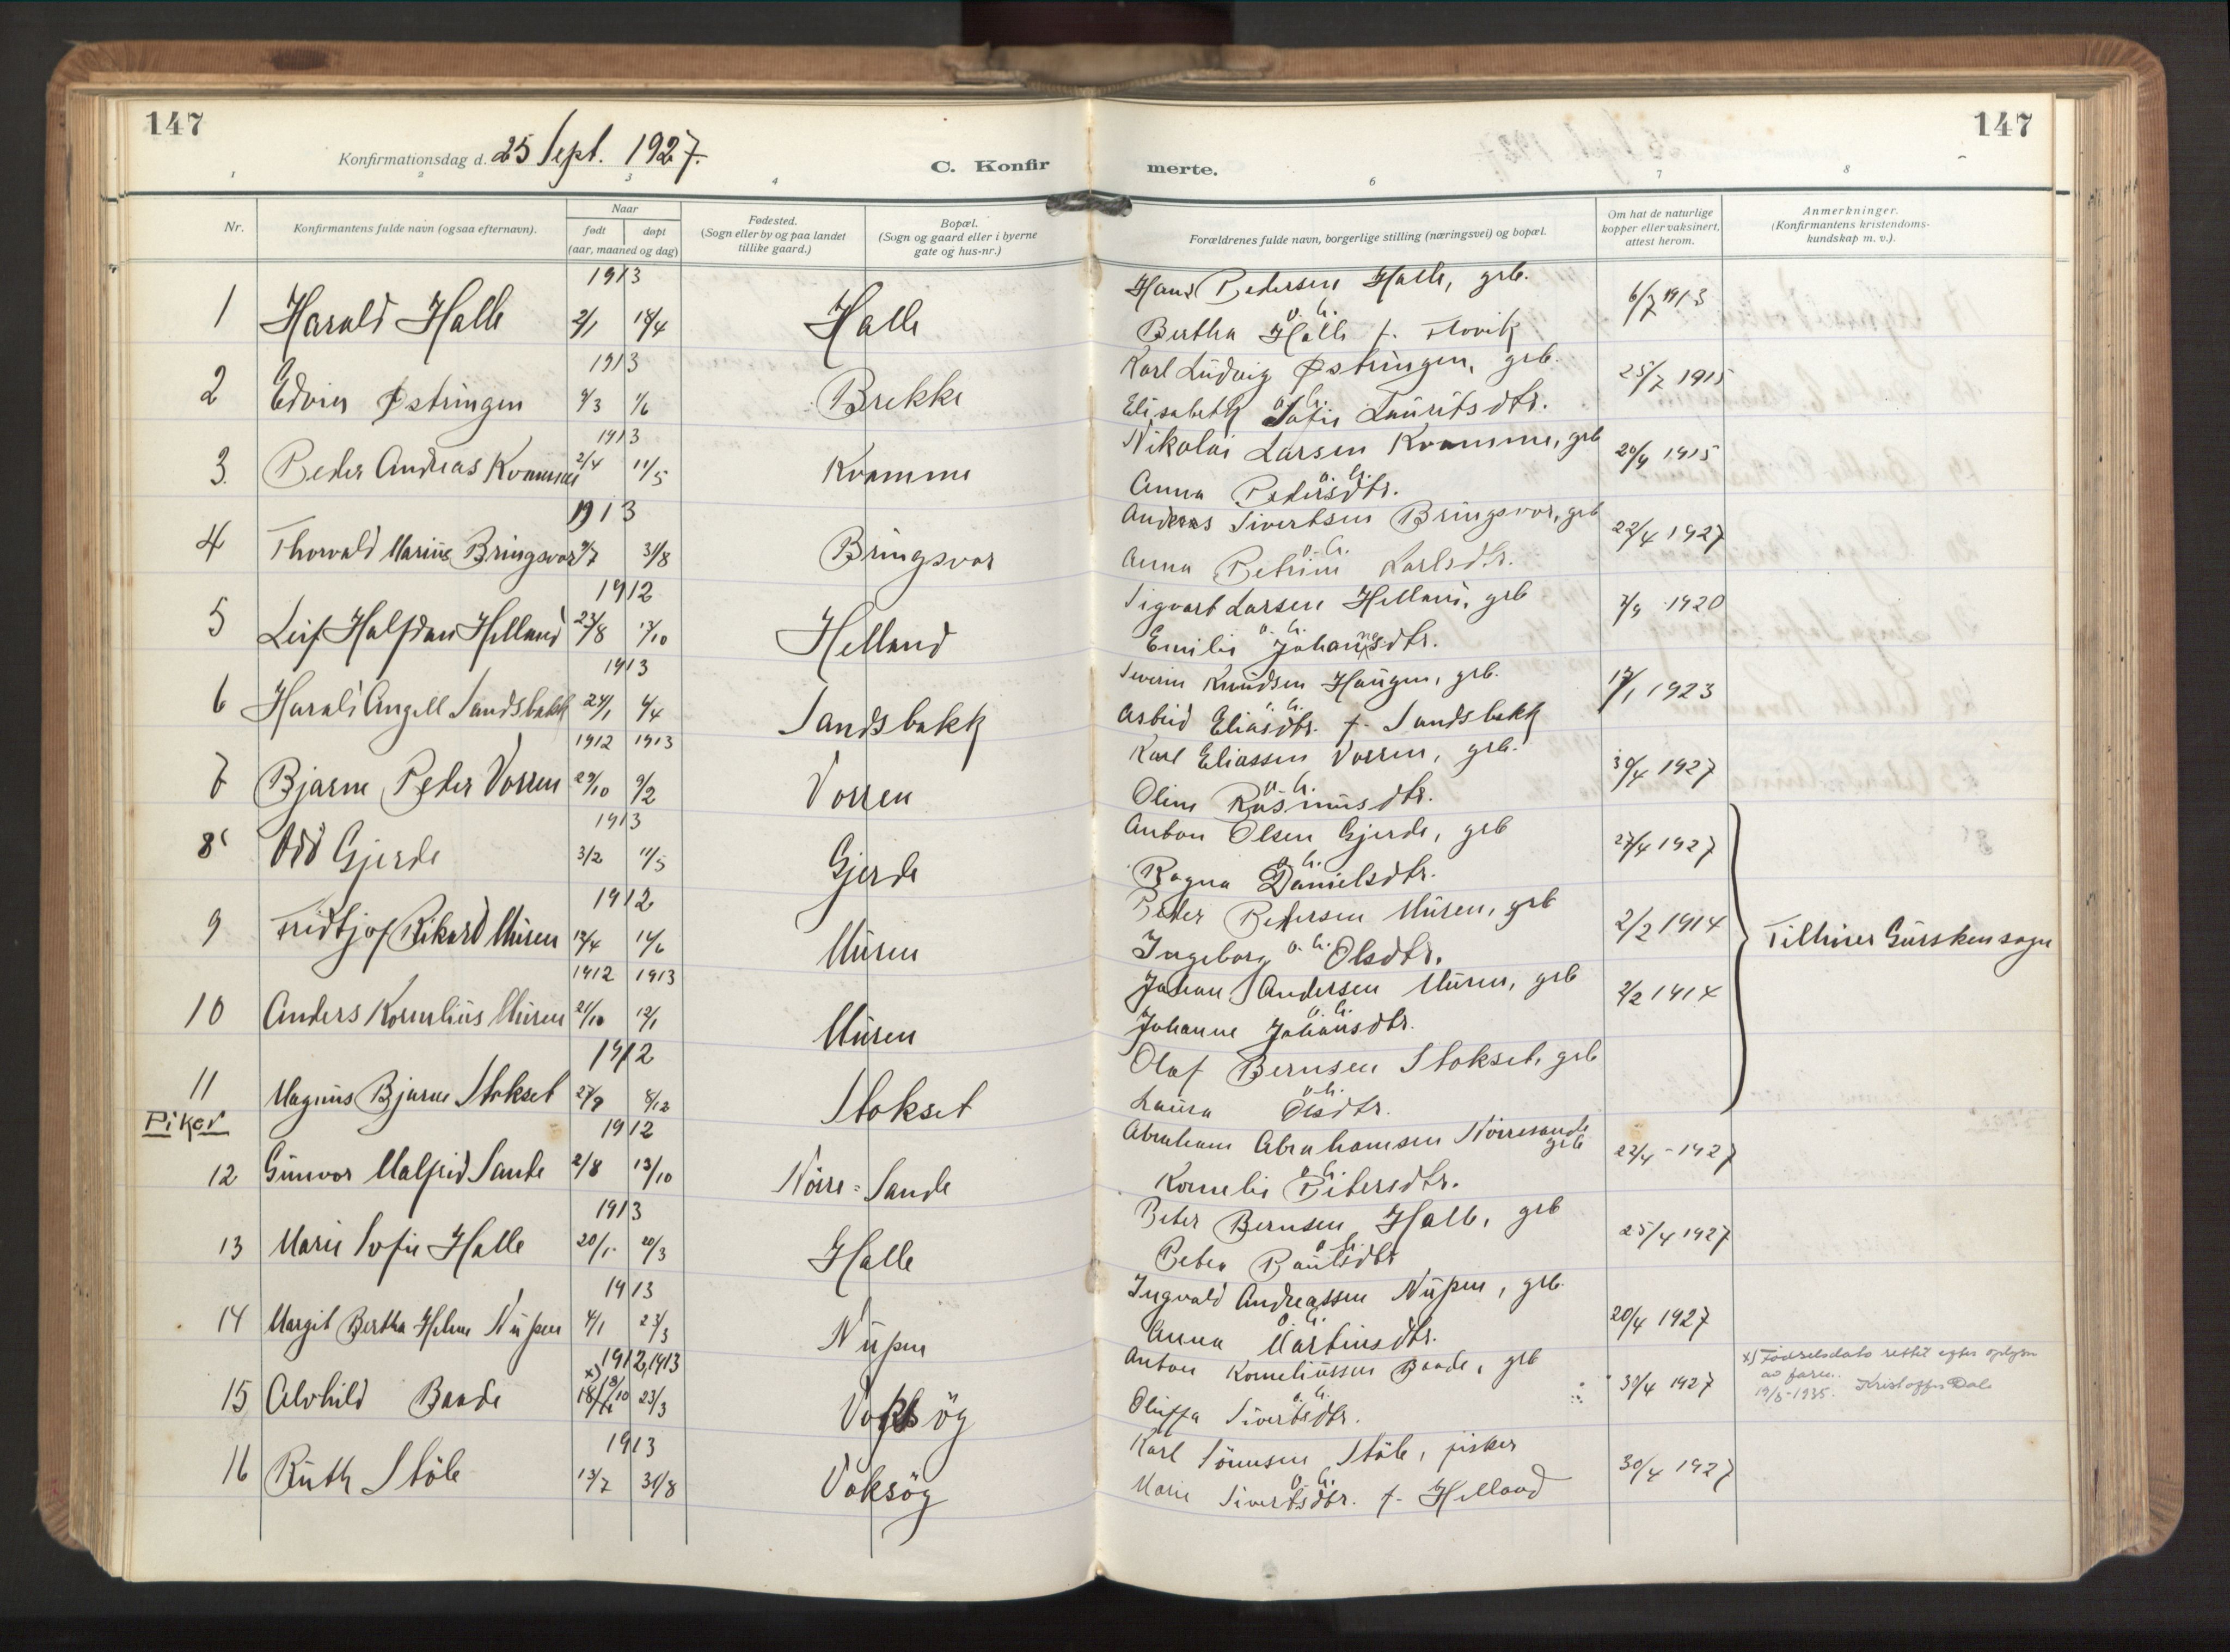 147
147
Konfirmationsdag d. 25 Sept. 1927.
C. Konfir
merte.
1 2 3 4 6 7 8
Nr.
Konfirmantens fulde navn (ogsaa efternavn).
Naar
født
døpt
(aar, maaned og dag)
Fødested.
(Sogn eller by og paa landet
tillike gaard.)
Bopæl.
(Sogn og gaard eller i byerne
gate og hus-nr.)
Forældrenes fulde navn, borgerlige stilling (næringsvei) og bopæl.
Om hat de naturlige
kopper eller vaksinert,
attest herom.
Anmerkninger.
(Konfirmantens kristendoms-
kundskap m. v.).
1913
Hans Pedersen Halle, grb.
1 Harald Halle 2/1 18/4 Halle 6/7 1913
o. h.
Bertha Halle f. Flovik
1913
Karl Ludvig Østringen, grb.
2 Edvin Østringen /3 1/6 Brekke 25/7 1915
o. h.
Elisabeth Sofie Lauritsdtr.
1913
Nikolai Larsen Kvamme, grb
3. Peder Andreas Kvamme 2/4 11/5 Kvamme 20/9 1915
o. h.
Anna Pedersdtr.
1913
Anders Sivertsen Bringsvor, grb
4 Thorvald Marius Bringsvor 9/7 31/8 Bringsvor 22/4 1927
o. h.
Anna Petrine Karlsdtr.
1912
Sigvart Larsen Helland, grb
5 Leif Halfdan Helland 23/8 13/10 Helland 7/9 1920
o. h.
Emilie Johannesdtr.
1913
Severin Knudsen Haugen, grb.
6 Harald Angell Sandsbakk 24/1 4/4 Sandsbakk 17/1 1923
o. h.
Astrid Eliasdtr. f. Sandsbakk
1912 1913
Karl Eliassen Vorren, grb.
7 Bjarne Peder Vorren 29/10 9/2 Vorren 30/4 1927
o. h.
Oline Rasmusdtr.
1913
Anton Olsen Gjerde, grb
8 Odd Gjerde 3/2 11/5 Gjerde 27/4 1927
o. h.
Ragna Danielsdtr.
1912
Peder Pedersen Muren, grb
9 Fridtjof Rikard Muren 12/4 16/6 Muren 2/2 1914 Tilhører Gursken sogn
Ingeborg o. h. Olsdtr.
1912 1913
Johan Andersen Muren, grb
10 Anders Kornelius Muren 21/10 12/1 Muren 2/2 1914
o. h.
Johanne Johansdtr.
1912
Olaf Bernsen Stokset, grb
11 Magnus Bjarne Stokset 27/9 8/12 Stokset
o. h.
Laura Olsdtr.
Piker
1912
Abraham Abrahamsen Nörresande
grb
12 Gunvor Malfrid Sande 2/8 13/10 Nörre=Sande 22/4 - 1927
o. h.
Kornelie Petersdtr.
1913
Peter Bernsen Halle, grb
13 Marie Sofie Halle 20/1 20/3 Halle 25/4 1927
o. h.
Petra Paulsdtr
1913
Ingvald Andreassen Nupen, grb.
14 Margit Bertha Helene Nupen 4/1 23/3 Nupen 20/4 1927
o. h.
Anna Martinsdtr.
x) 1912, 1913
Anton Korneliussen Baade, grb
15 Alvhild Baade 18/10 23/3 Voksög 30/4 1927
x) Födselsdato rettet efter oplysn
av faren.
19/5-1935. Kristoffer Dale
o. h.
Oluffa Sivertsdtr.
1913
Karl Sörensen Stöle, fisker
16 Ruth Stöle 13/7 31/8 Voksög 30/4 1927
o. h.
Marie Sivertsdtr. f. Helland